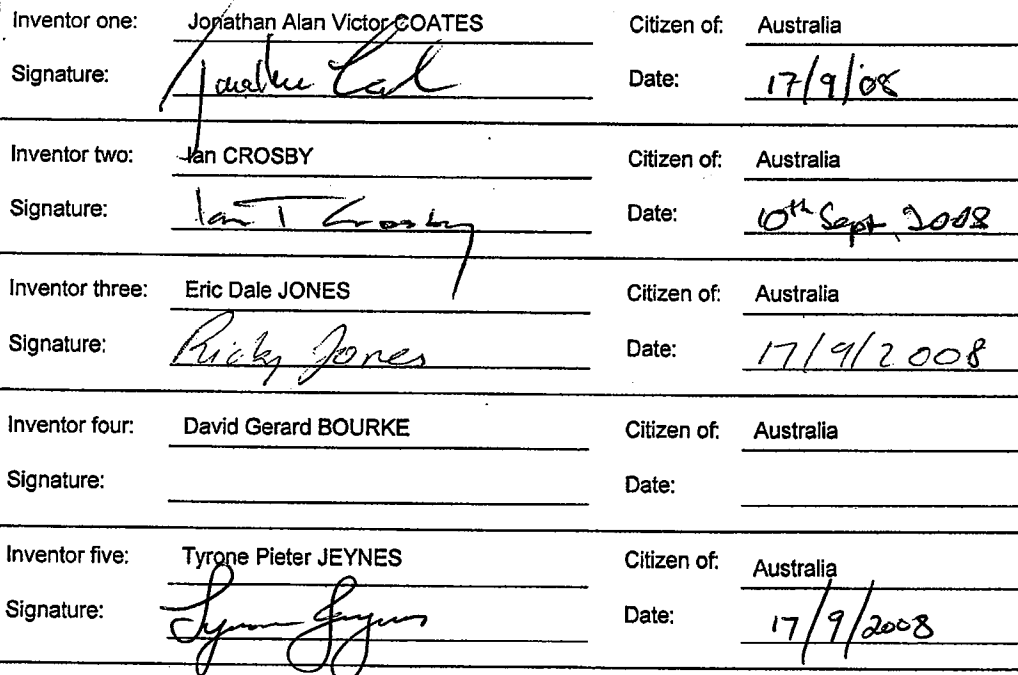 Inventor one: Jonathan Alan Victor COATES Citizen of: Australia
Signature: Date: 17/9/08
Inventor two: Ian CROSBY Citizen of: Australia
Signature: Ian T Crosby Date: 10th Sept, 2008
Inventor three: Eric Dale JONES Citizen of: Australia
Signature: Ricky Jones Date: 17/9/2008
Inventor four: David Gerard BOURKE Citizen of: Australia
Signature: Date:
Inventor five: Tyrone Pieter JEYNES Citizen of: Australia
Signature: Date: 17/9/2008